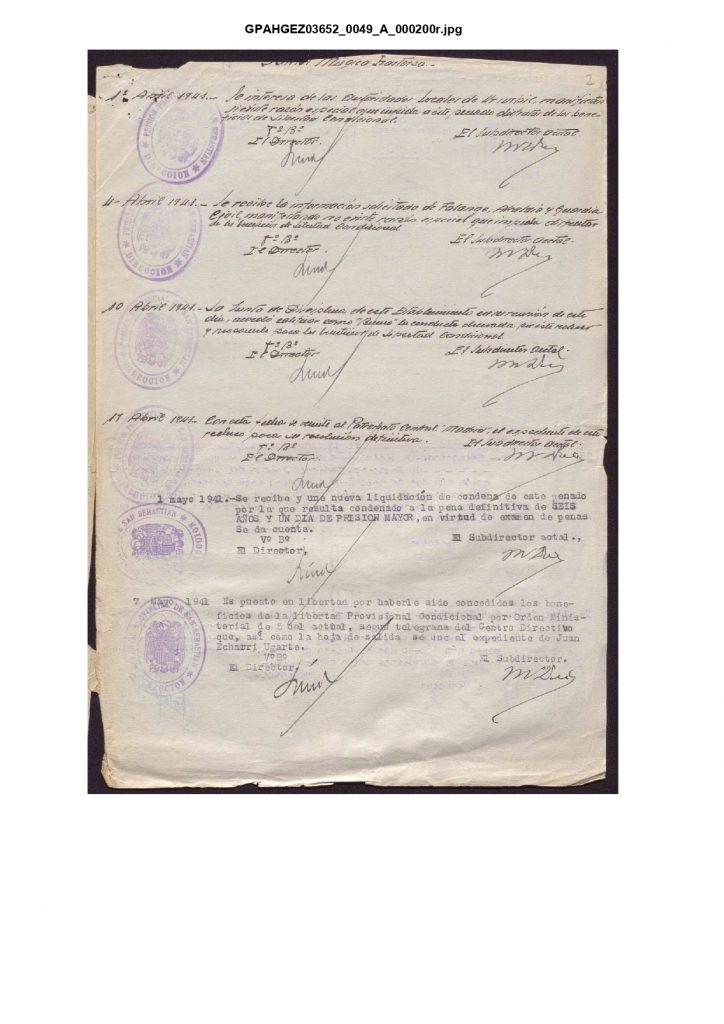 GPAHGEZ03652_0049_A_000200r.jpg
2
Mugica
1º Abril 1941.- Se interesa de las Autoridades Locales de manifiesten
si existe razón especial que impida a este penado disfrutar de los bene-
ficios de Libertad Condicional.
Vº Bº
El Director. El Subdirector actal.
4- Abril 1941.- Se recibe la información solicitada de Falange, Alcaldía y Guardia
Civil, manifestando no existe razón especial que impida disfrutar
de los beneficios de libertad Condicional
Vº Bº El Subdirector actal.
El Director.
10 Abril 1941.- La Junta de Disciplina de este Establecimiento en su reunión de este
día, acordó calificar como "Buena" la conducta observada por este recluso
y proponerle para los beneficios de Libertad Condicional.
Vº Bº El Subdirector actal.
El Director
17 Abril 1941.- Con esta fecha se remite al Patronato Central, Madrid, el expediente de este
recluso para su resolución definitiva.
Vº Bº El Subdirector actal.
El Director.
1 mayo 1941.-Se recibe y une nueva liquidación de condena de este penado
por la que resulta condenado a la pena definitiva de SEIS
AÑOS Y UN DIA DE PRISION MAYOR, en virtud de examen de penas.
Se da cuenta.
Vº Bº El Subdirector actal.,
El Director,
SAN SEBASTIAN
7 Mayo 1941 Es puesto en libertad por haberle sido concedidos los bene-
ficios de la libertad Provisional Condicional por Orden Minis-
terial de 5 del actual, según telegrama del Centro Directivo
que, así como la hoja de salida se une al expediente de Juan
Echarri Ugarte.
VºBº El Subdirector.
El Director.
DE SAN SEBASTIAN
DIRECCION